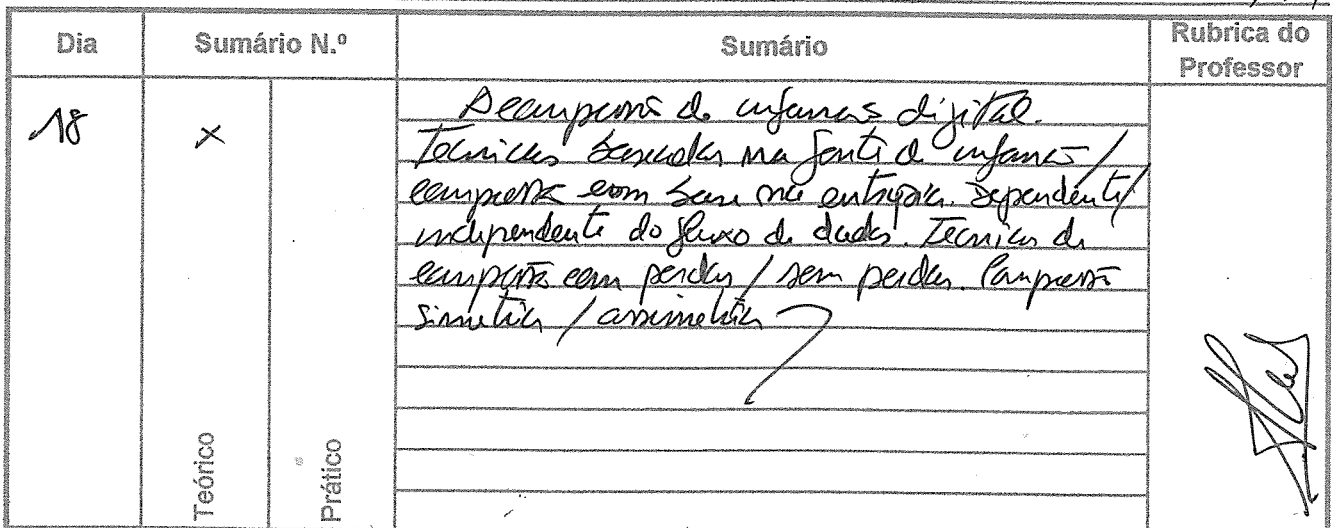 Dia
Sumário N.º
Sumário
Rubrica do
Professor
18
x
Teórico
Prático
Decompressão de informação digital.
Técnicas baseadas na fonte de informação /
compressão com base na entropia. Dependente /
independente do fluxo de dados. Técnicas de
compressão com perdas / sem perdas. Compressão
simétrica / assimétrica